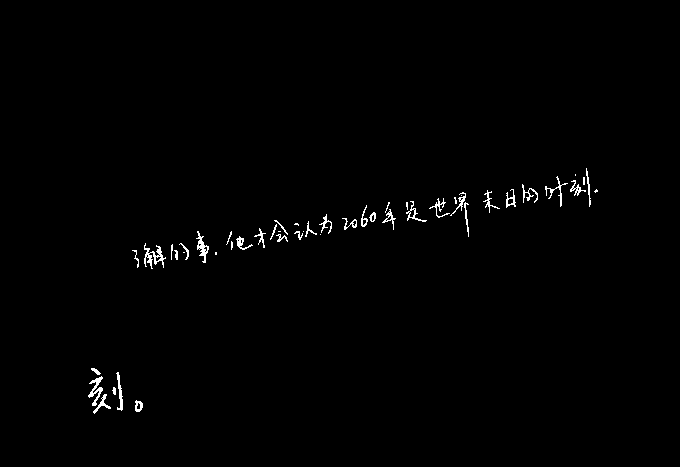 了解的事,他才会认为2060年是世界末日的时刻.
刻。